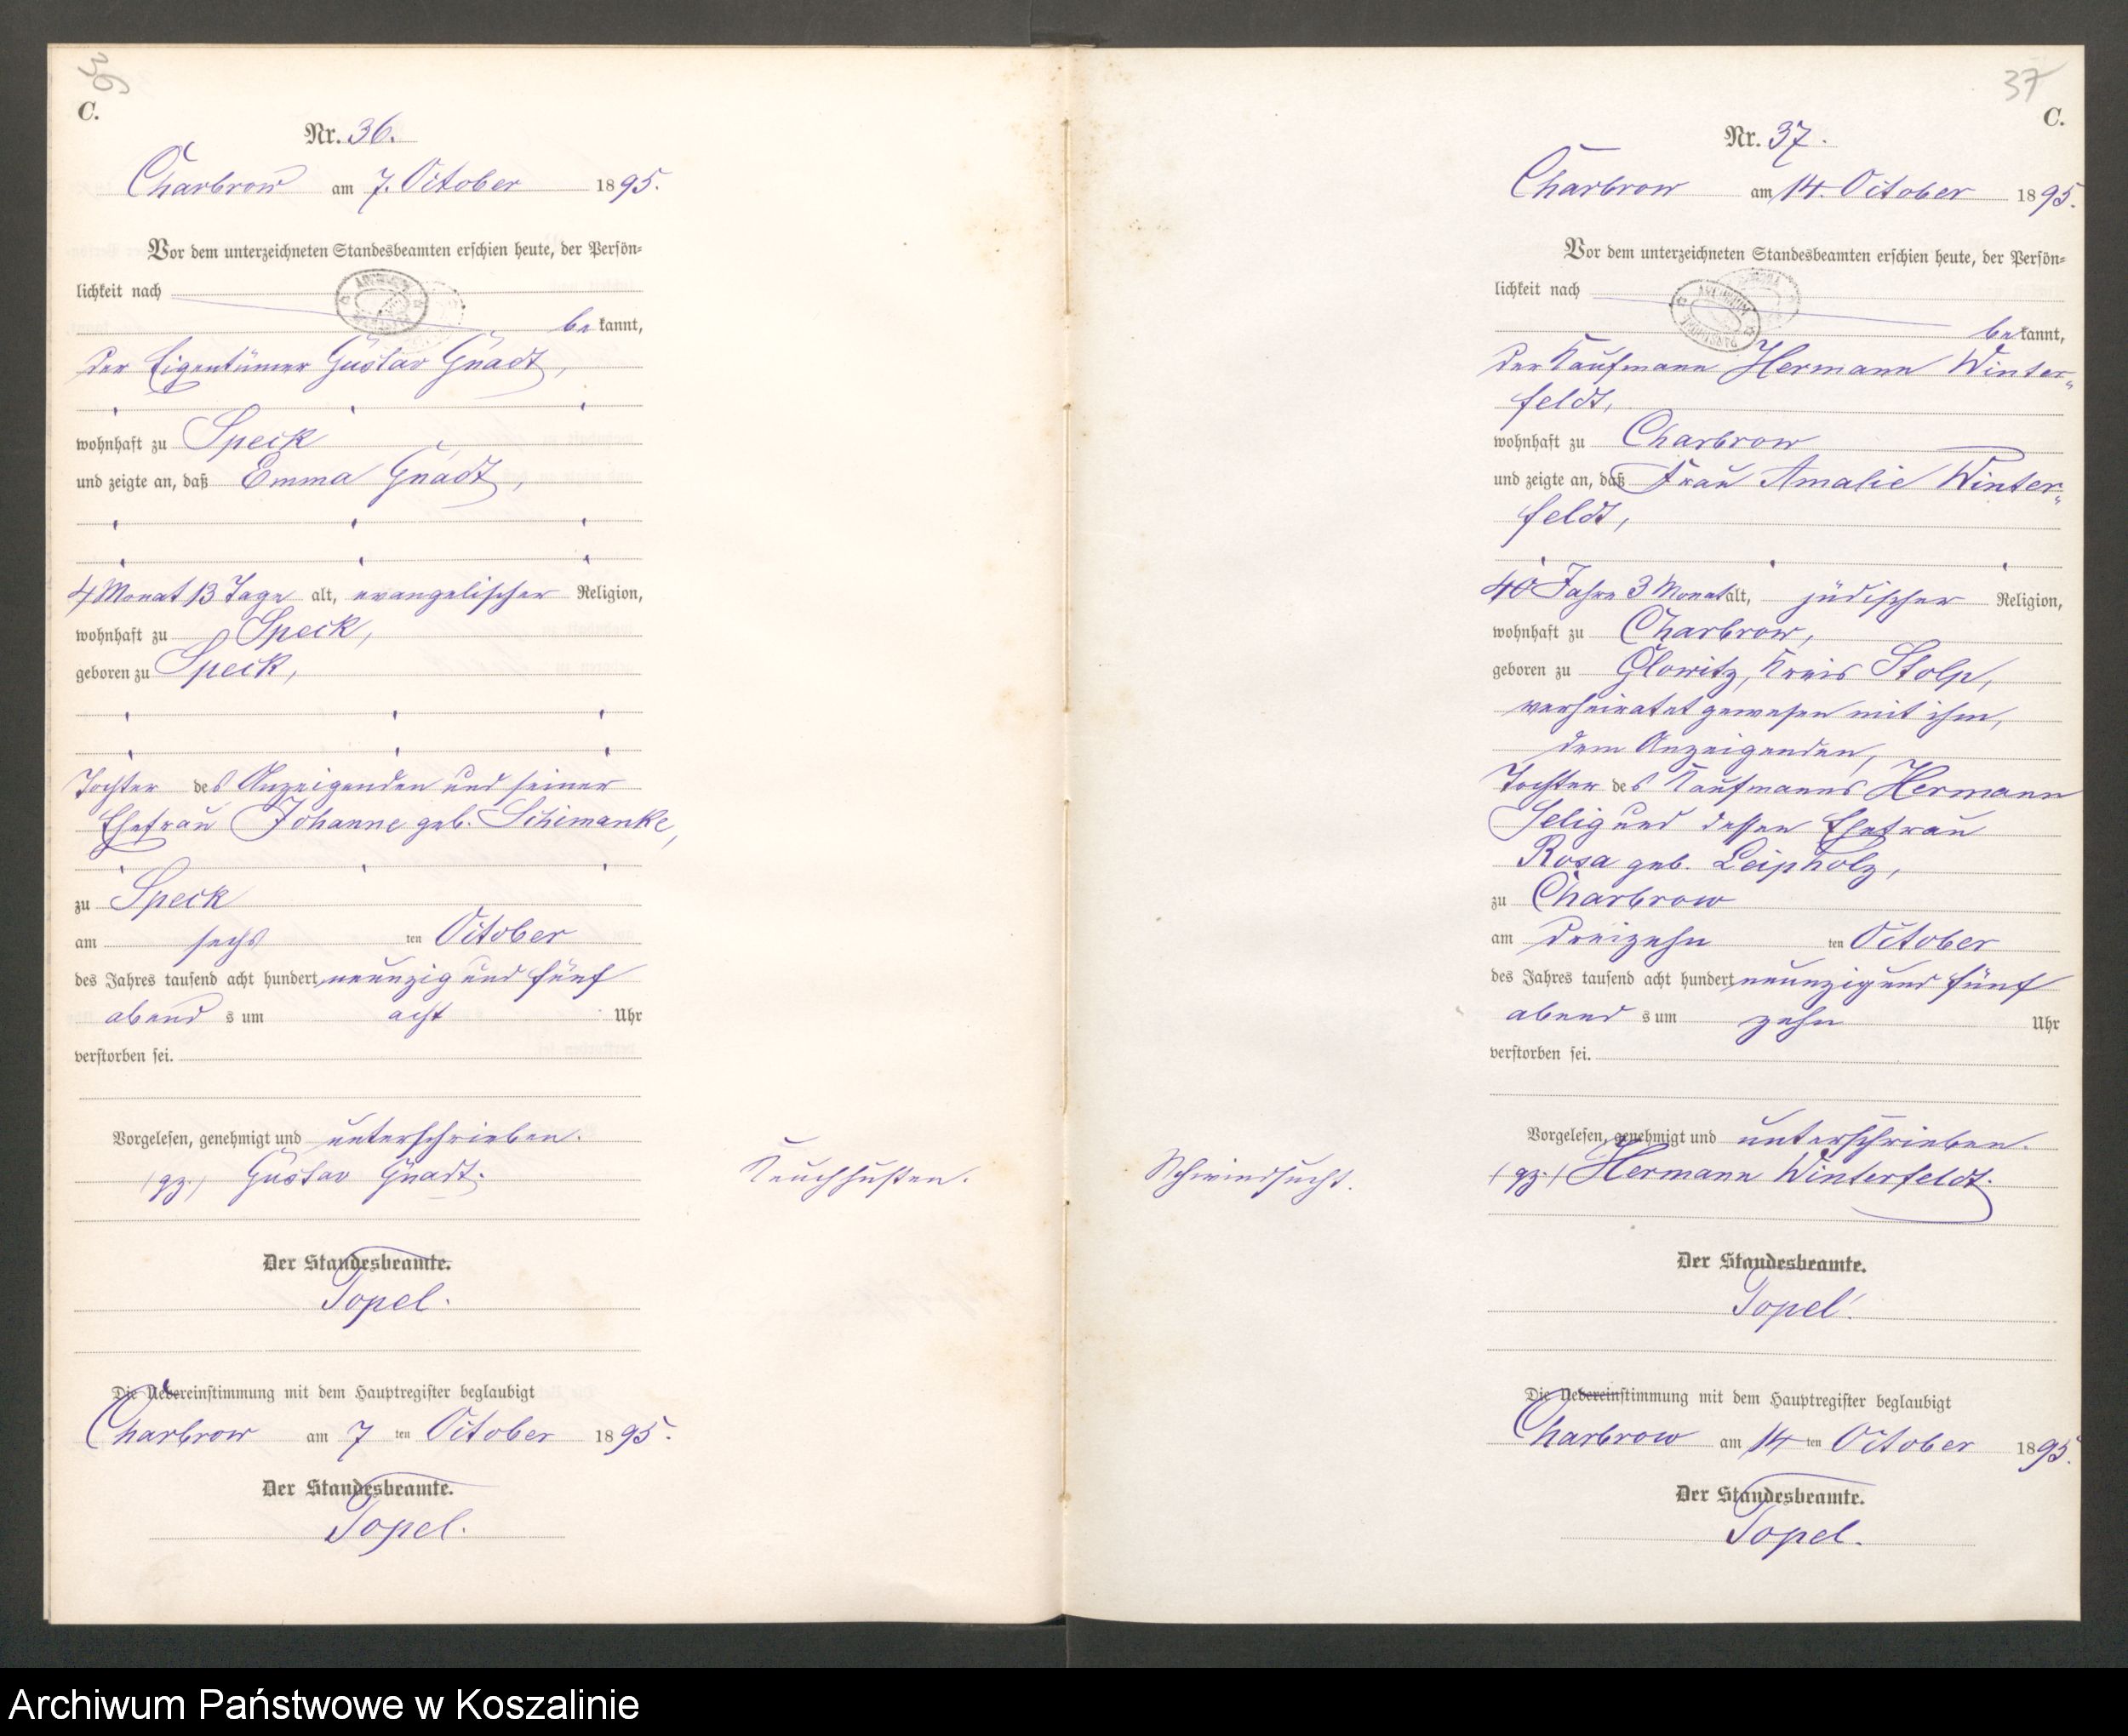 36
C.
Nr. 36.
Charbrow am 7. October 1895.
Vor dem unterzeichneten Standesbeamten erschien heute, der Persön-
lichkeit nach
bekannt,
der Eigentümer Gustav Gnadt,
wohnhaft zu Speck
und zeigte an, daß Emma Gnadt,
4 Monat 13 Tage alt, evangelischer Religion,
wohnhaft zu Speck,
geboren zu Speck,
Tochter des Anzeigenden und seiner
Ehefrau Johanne geb. Schimanke,
zu Speck
am sechsten October
des Jahres tausend acht hundert neunzig und fünf
abends um acht Uhr
verstorben sei.
Vorgelesen, genehmigt und unterschrieben.
(gz.) Gustav Gnadt.
Keuchhusten.
Der Standesbeamte.
Topel.
Die Uebereinstimmung mit dem Hauptregister beglaubigt
Charbrow am 7ten October 1895.
Der Standesbeamte.
Topel.
37
C.
Nr. 37.
Charbrow am 14. October 1895.
Vor dem unterzeichneten Standesbeamten erschien heute, der Persön-
lichkeit nach
bekannt,
der Kaufmann Hermann Winter-
feldt,
wohnhaft zu Charbrow
und zeigte an, daß Frau Amalie Winter-
feldt,
40 Jahre 3 Monat alt, jüdischer Religion,
wohnhaft zu Charbrow,
geboren zu Glowitz, Kreis Stolp,
verheiratet gewesen mit ihm,
dem Anzeigenden,
Tochter des Kaufmanns Hermann
Selig und dessen Ehefrau
Rosa geb. Leipholz,
zu Charbrow
am dreizehnten October
des Jahres tausend acht hundert neunzig und fünf
abends um zehn Uhr
verstorben sei.
Vorgelesen, genehmigt und unterschrieben.
(gz.) Hermann Winterfeldt.
Schwindsucht.
Der Standesbeamte.
Topel.
Die Uebereinstimmung mit dem Hauptregister beglaubigt
Charbrow am 14ten October 1895.
Der Standesbeamte.
Topel.
Archiwum Państwowe w Koszalinie